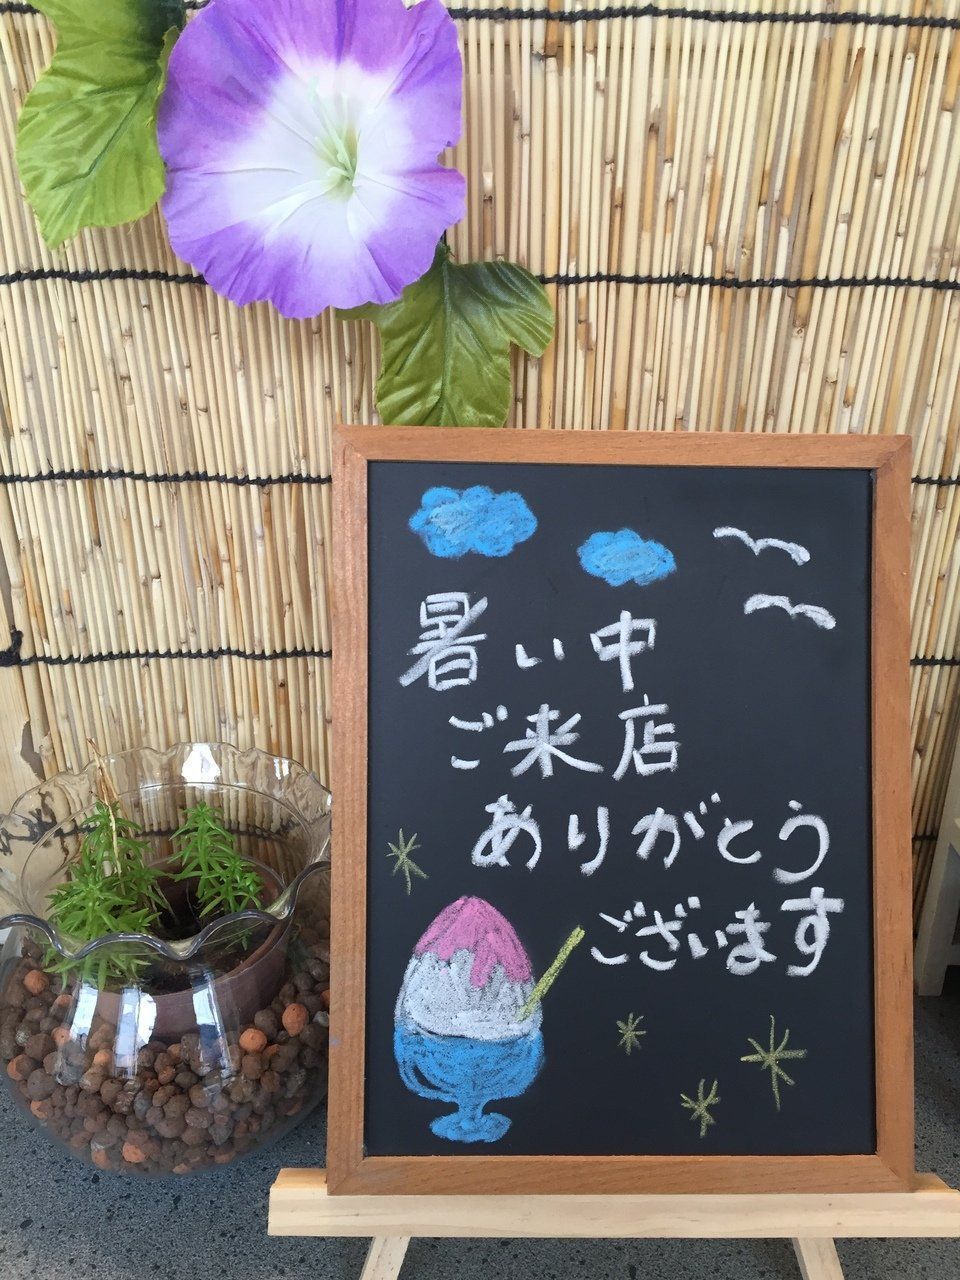 暑い中
ご来店
ありがとう
ございます